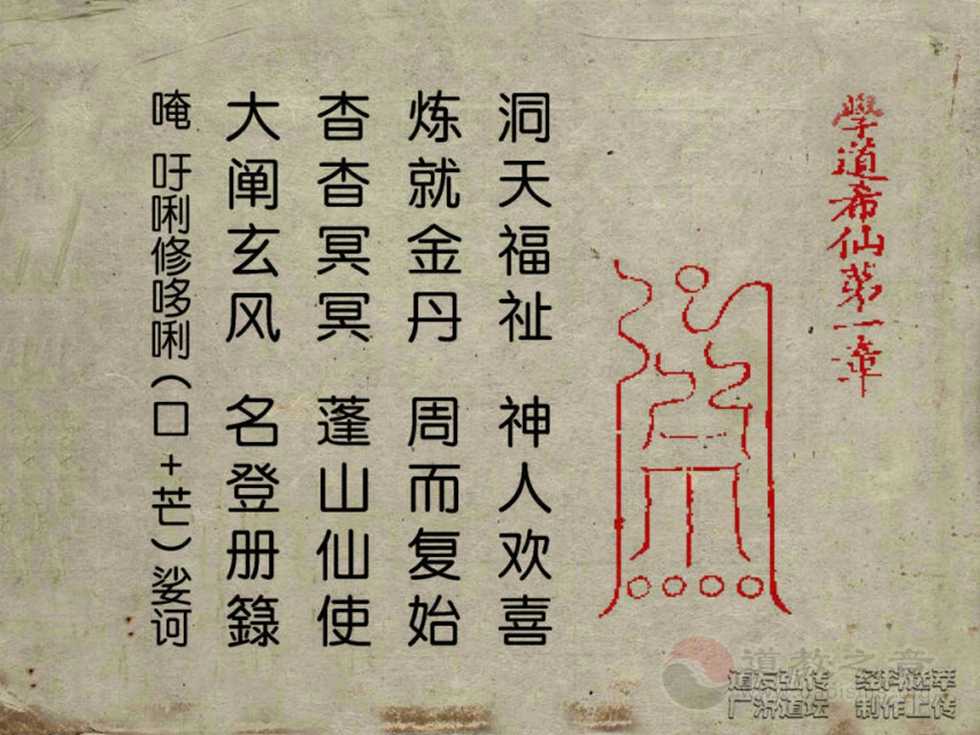 學道希仙第一章
洞天福祉 神人欢喜
炼就金丹 周而复始
杳杳冥冥 蓬山仙使
大阐玄风 名登册籙
唵 吁唎修哆唎(口+芒)娑诃
道教之音
道友弘传 经科选萃
广济道坛 制作上传